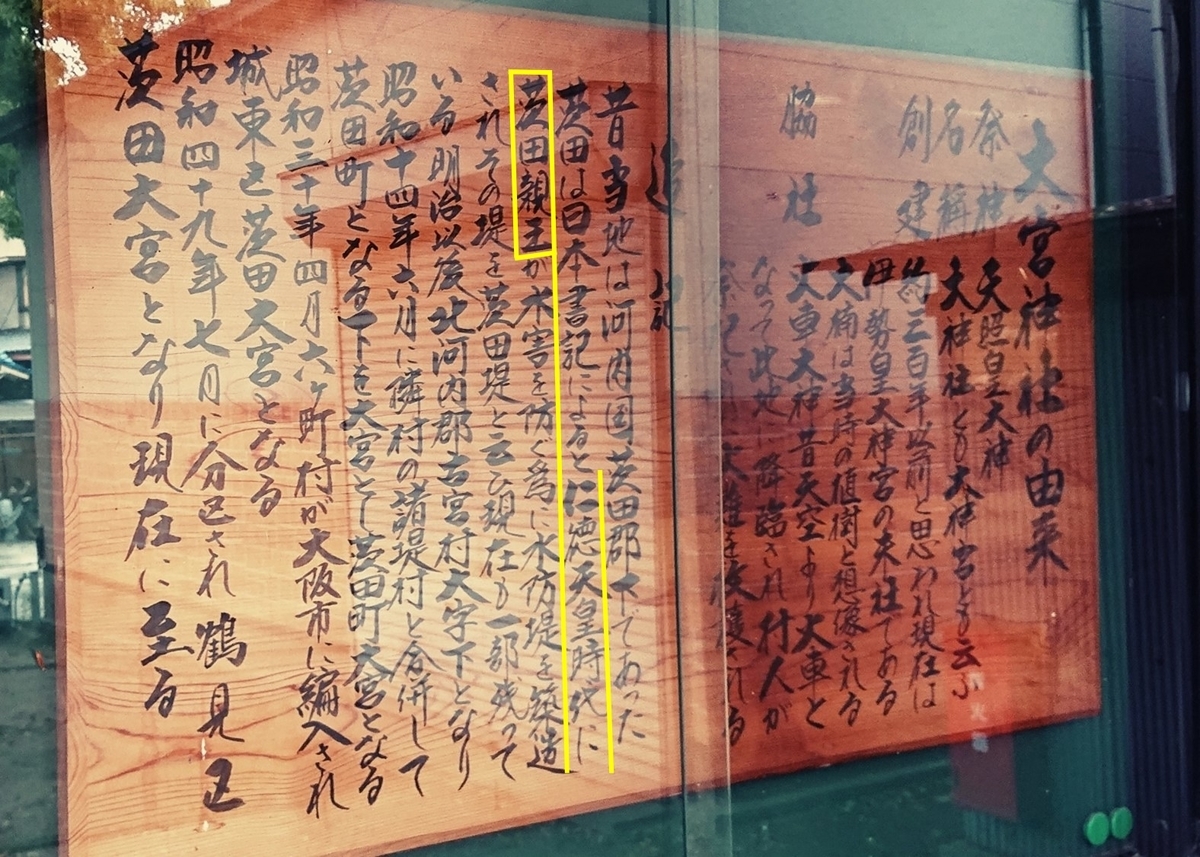 大宮神社の由来
祭神 天照皇大神
名称 大神社とも大神宮とも云ふ
創建 約三百年以前と思われ現在は
伊勢皇大神宮の末社である
大楠は当時の植樹と想像される
脇社 大車大神昔天空より大車と
なって此地に降臨され村人が
追記
昔当地は河内国茨田郡下であった
茨田は日本書記によると仁徳天皇時代に
茨田親王が水害を防ぐ為に水防堤を築造
されその堤を茨田堤と云ひ現在も一部残って
いる明治以後北河内郡古宮村大字下となり
昭和十四年六月に隣村の諸堤村と合併して
茨田町となる下を大宮とし茨田町大宮となる
昭和三十年四月六ヶ町村が大阪市に編入され
城東区茨田大宮となる
昭和四十九年七月に分区され鶴見区
茨田大宮となり現在に至る